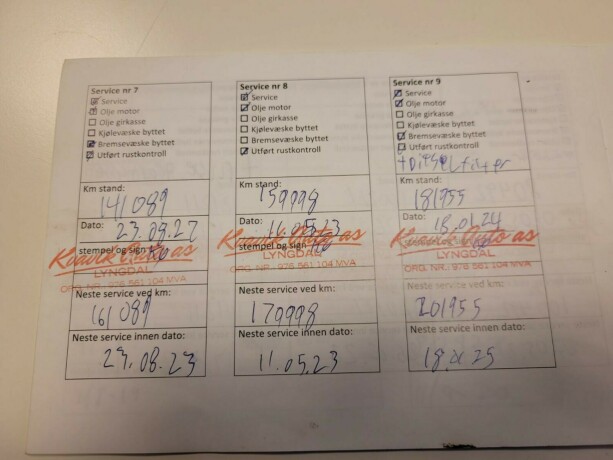 Service nr 7
Service
Olje motor
Olje girkasse
Kjølevæske byttet
Bremsevæske byttet
Utført rustkontroll
Km stand:
141089
Dato:
23.08.22
stempel og sign
Kvavik Auto as
LYNGDAL
ORG. NR.: 976 561 104 MVA
Neste service ved km:
161089
Neste service innen dato:
23.08.23
Service nr 8
Service
Olje motor
Olje girkasse
Kjølevæske byttet
Bremsevæske byttet
Utført rustkontroll
Km stand:
159998
Dato:
stempel og sign
Kvavik Auto as
LYNGDAL
ORG. NR.: 976 561 104 MVA
Neste service ved km:
179998
Neste service innen dato:
11.05.23
Service nr 9
Service
Olje motor
Olje girkasse
Kjølevæske byttet
Bremsevæske byttet
Utført rustkontroll
+ Dieselfilter
Km stand:
181955
Dato:
18.01.24
Kvavik Auto as
LYNGDAL
ORG. NR.: 976 561 104 MVA
Neste service ved km:
201955
Neste service innen dato: